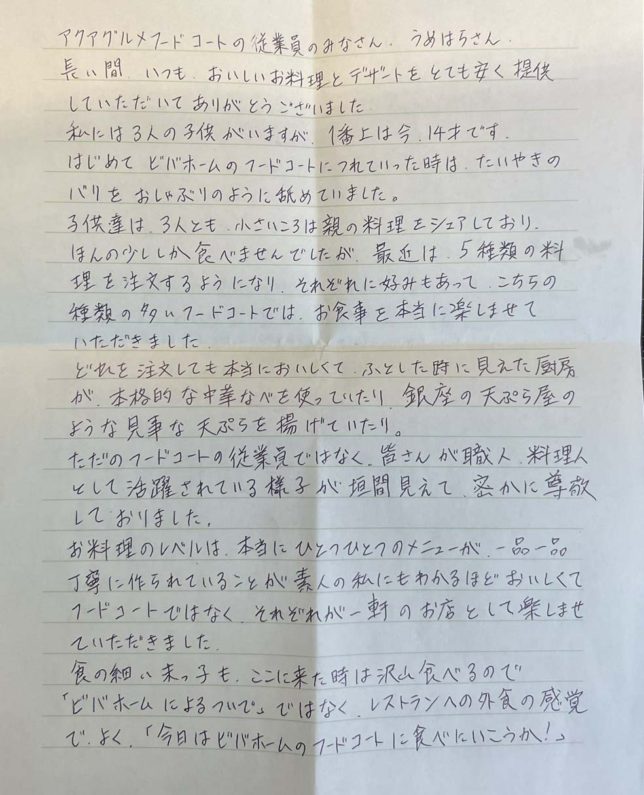 アクアグルメフードコートの従業員のみなさん、うめはらさん、
長い間、いつも、おいしいお料理とデザートをとても安く提供
していただいてありがとうございました。
私には3人の子供がいますが、1番上は今、14才です。
はじめてビバホームのフードコートにつれていった時は、たいやきの
バリをおしゃぶりのように舐めていました。
子供達は、3人とも、小さいころは親の料理をシェアしており、
ほんの少ししか食べませんでしたが、最近は、5種類の料
理を注文するようになり、それぞれに好みもあって、こちらの
種類の多いフードコートでは、お食事を本当に楽しませて
いただきました。
どれを注文しても本当においしくて、ふとした時に見えた厨房
が、本格的な中華なべを使っていたり、銀座の天ぷら屋の
ような見事な天ぷらを揚げていたり。
ただのフードコートの従業員ではなく、皆さんが職人、料理人
として活躍されている様子が垣間見えて、密かに尊敬
しておりました。
お料理のレベルは、本当にひとつひとつのメニューが、一品一品
丁寧に作られていることが素人の私にもわかるほどおいしくて
フードコートではなく、それぞれが一軒のお店として楽しませ
ていただきました。
食の細い末っ子も、ここに来た時は沢山食べるので
「ビバホームによるついで」ではなく、レストランへの外食の感覚
で、よく、「今日はビバホームのフードコートに食べにいこうか!」